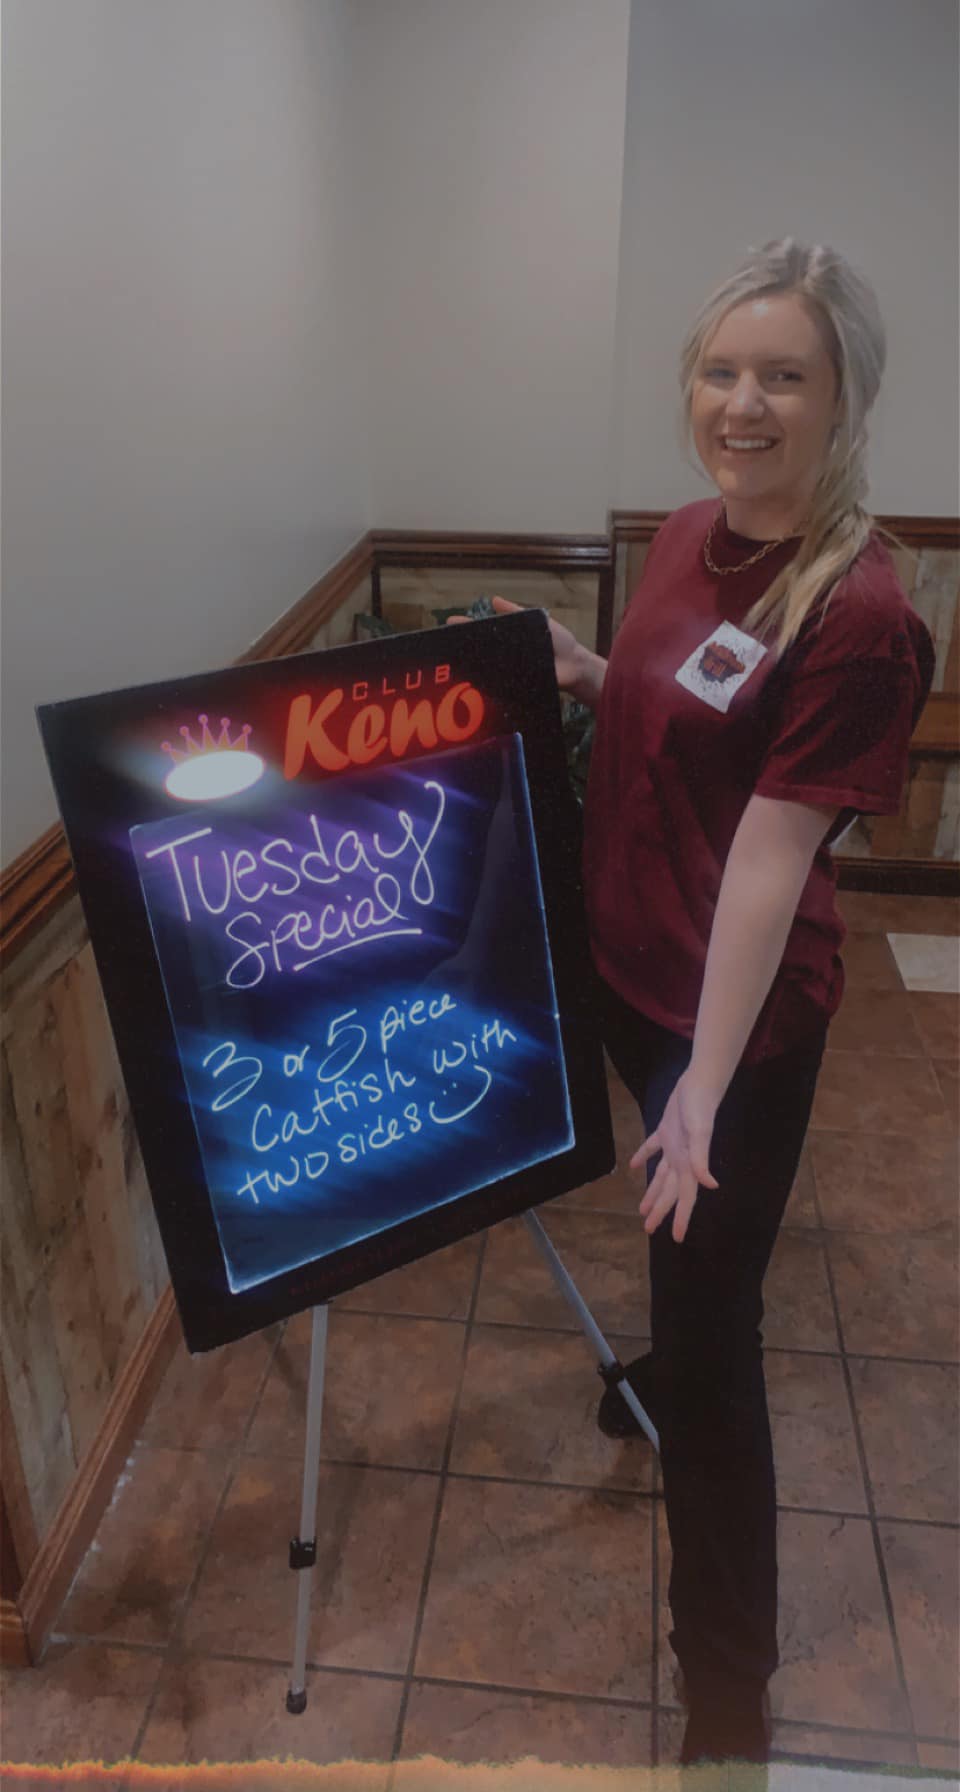 CLUB
Keno
Tuesday
Special
3 or 5 piece
Catfish with
two sides